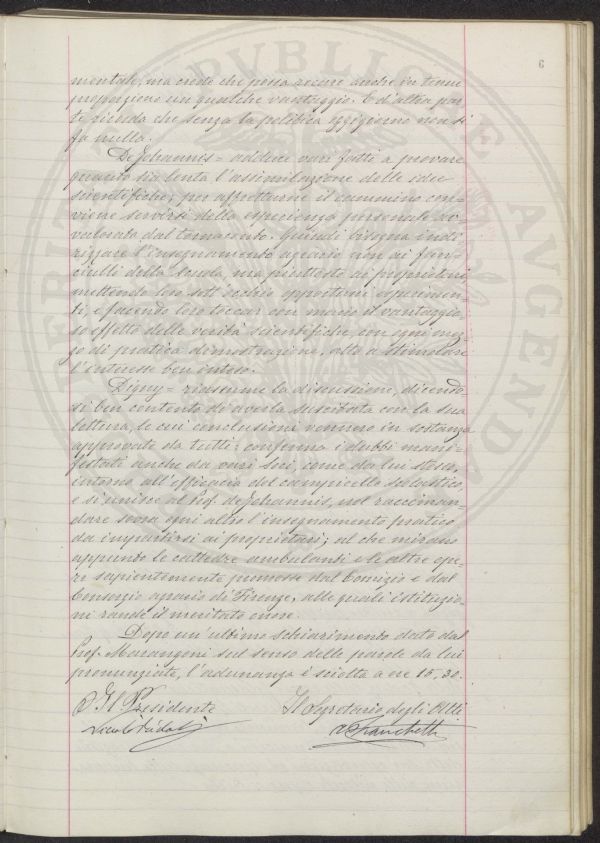 6
mentale, ma crede che possa recare anche in tenue
proporzione un qualche vantaggio. E d'altra par-
te ricorda che senza la politica oggigiorno non si
fa nulla.
De Johannis = adduce vari fatti a provare
quanto sia lenta l'assimilazione delle idee
scientifiche; per affrettarne il cammino con-
viene servirsi della esperienza personale av-
valorata dal tornaconto. Quindi bisogna indi-
rizzare l'insegnamento agrario non ai fan-
ciulli della scuola, ma piuttosto ai proprietari,
mettendo loro sott'occhio opportuni esperimen-
ti, e facendo loro toccar con mano il vantaggio-
so effetto delle verità scientifiche, con ogni mez-
zo di pratica dimostrazione, atto a stimolare
l'interesse ben inteso.
Digny = riassume la discussione, dicendo-
si ben contento di averla suscitata con la sua
lettura, le cui conclusioni vennero in sostanza
approvate da tutti: conferma i dubbi mani-
festati anche da vari Soci, come da lui stesso,
intorno all'efficacia del campicello scolastico
e si unisce al Prof. de Johannis, nel raccoman-
dare sopra ogni altro l'insegnamento pratico
da impartirsi ai proprietari; al che mirano
appunto le cattedre ambulanti e le altre ope-
re sapientemente promosse dal Comizio e dal
Consorzio agrario di Firenze, alle quali istituzio-
ni rende il meritato onore.
Dopo un'ultimo schiarimento dato dal
Prof. Marangoni sul senso delle parole da lui
pronunziate, l'adunanza è sciolta a ore 15,30.
Il Presidente
Il Segretario degli Atti
Franchetti
PVBLICAE
AVGENDA